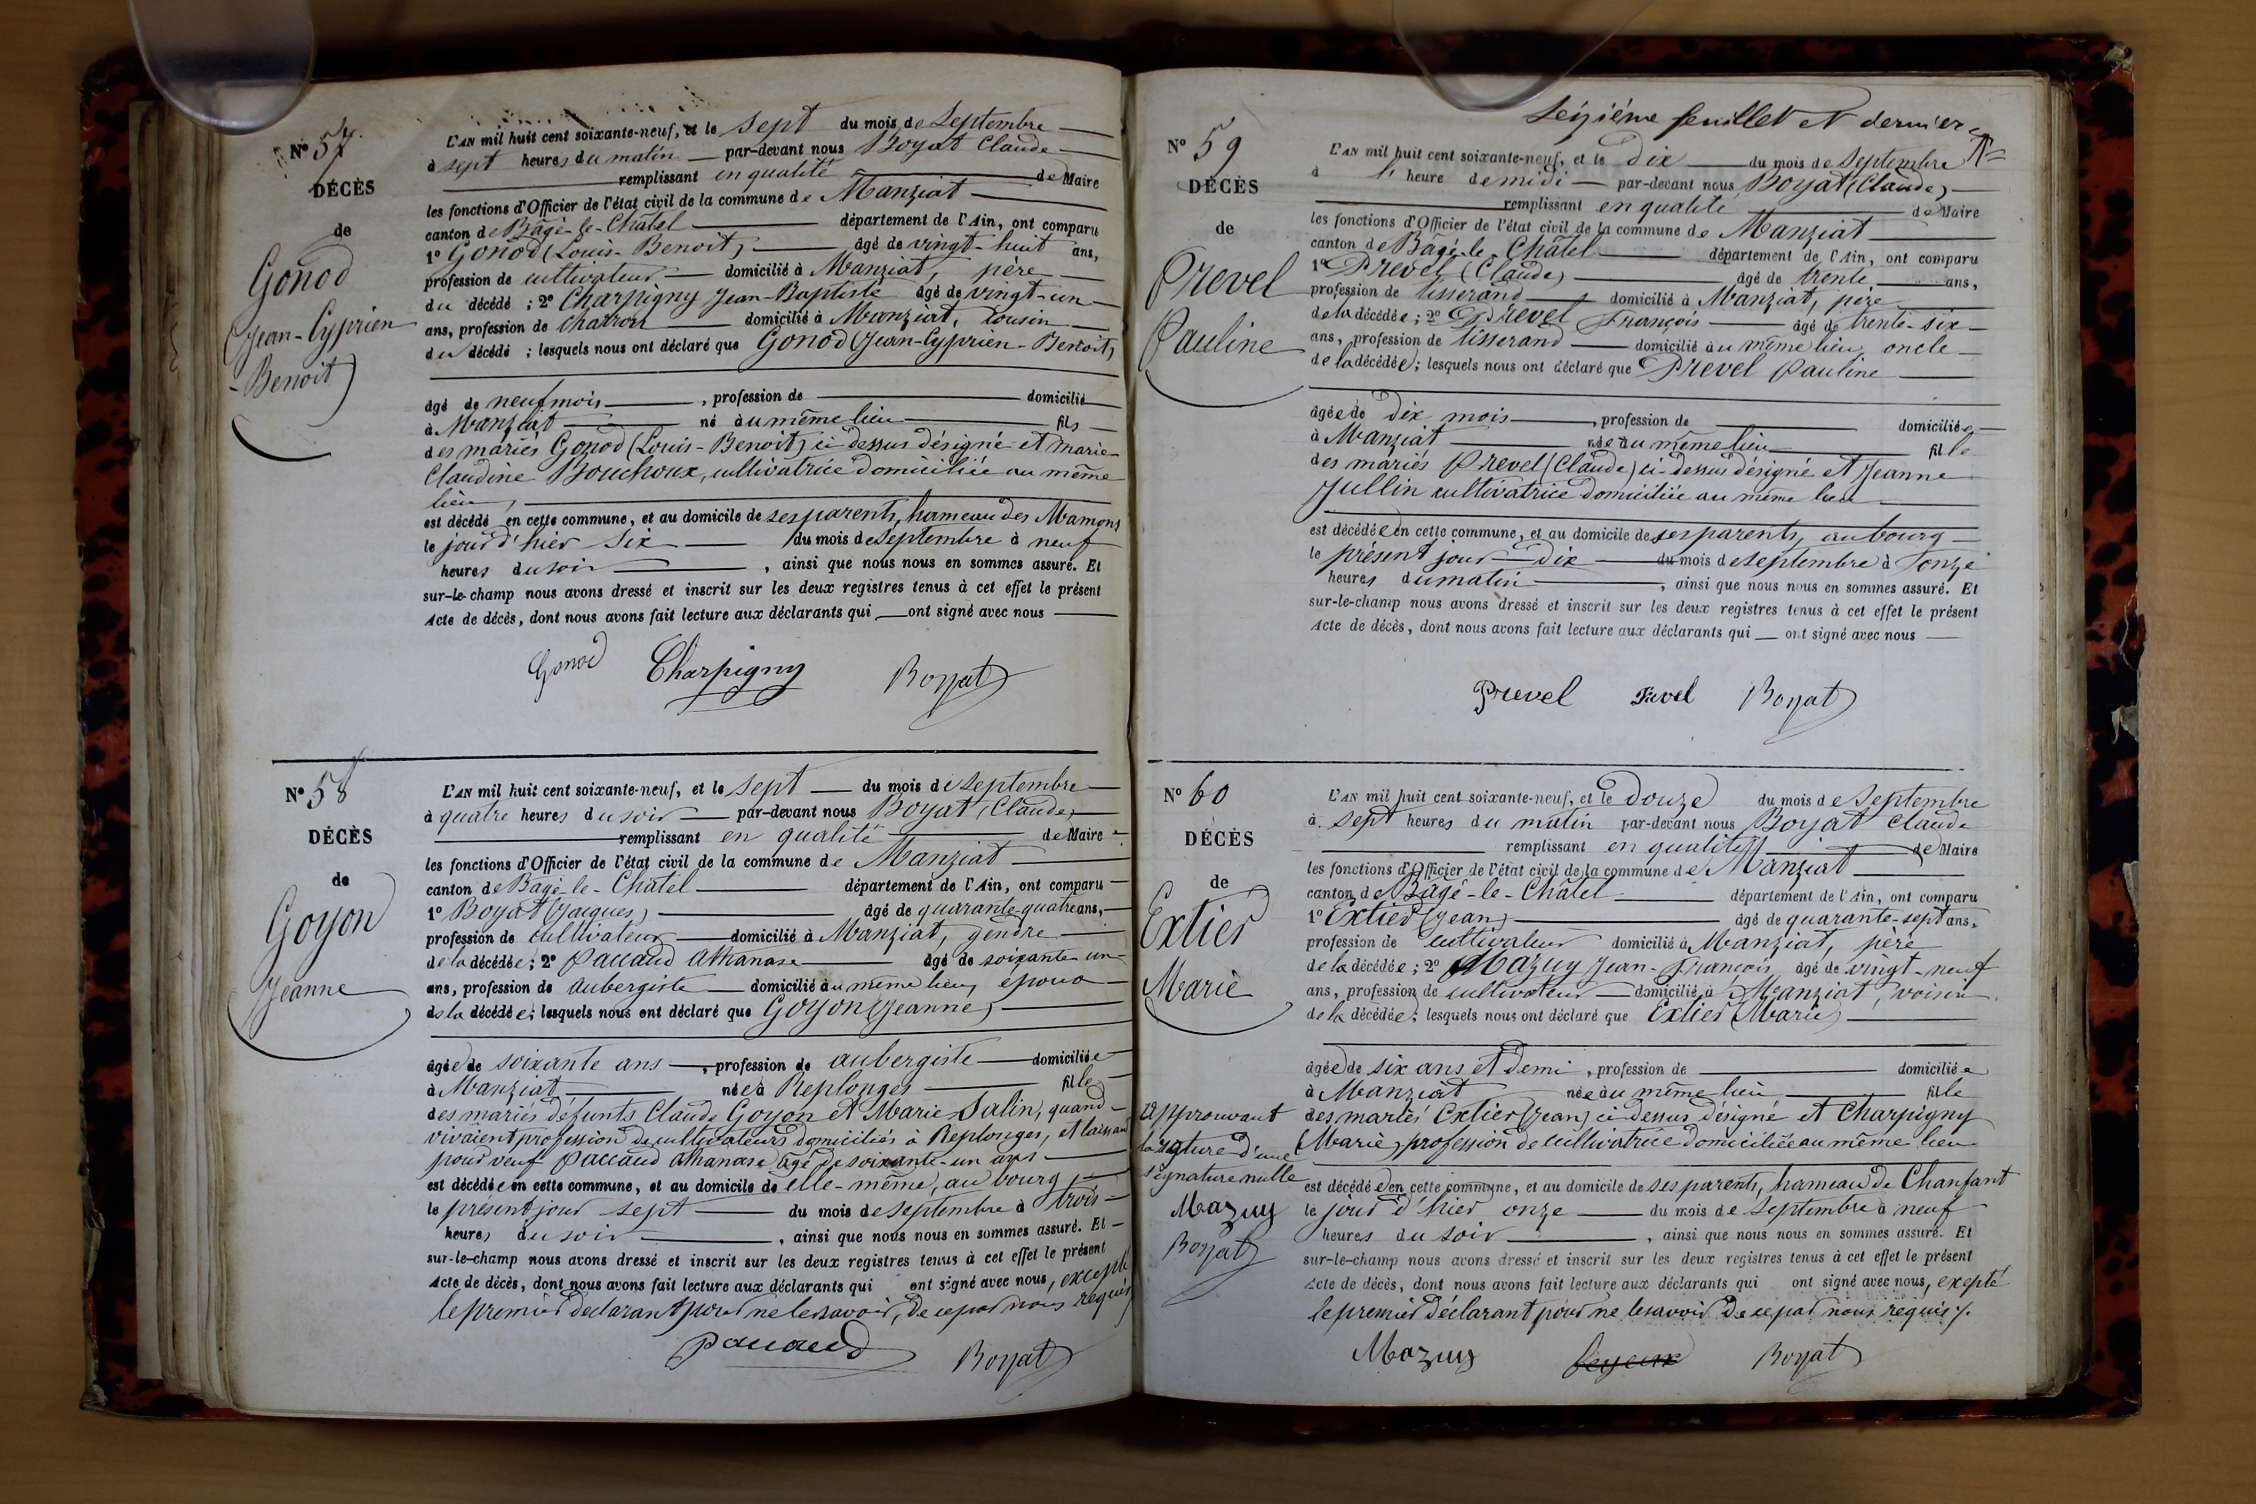 N° 57
DÉCÈS
de
Gonod
(Jean-Cyprien
-Benoit)
L'AN mil huit cent soixante-neuf, et le sept du mois de Septembre
à sept heures du matin par-devant nous Boyat Claude
remplissant en qualité de Maire
les fonctions d'Officier de l'état civil de la commune de Manziat
canton de Bâgé-le-Châtel département de l'Ain, ont comparu
1° Gonod (Louis-Benoit) âgé de vingt-huit ans,
profession de cultivateur domicilié à Manziat, père
du décédé ; 2° Charpigny Jean-Baptiste âgé de vingt-un
ans, profession de charron domicilié à Manziat, cousin
du décédé ; lesquels nous ont déclaré que Gonod (Jean-Cyprien-Benoit)
âgé de neuf mois, profession de domicilié
à Manziat né au même lieu fils
des mariés Gonod (Louis-Benoit) ci-dessus désigné et Marie-
Claudine Bouchoux, cultivatrice domiciliée au même
lieu,
est décédé en cette commune, et au domicile de ses parents, hameau des Mamons
le jour d'hier six du mois de Septembre à neuf
heures du soir, ainsi que nous nous en sommes assuré. Et
sur-le-champ nous avons dressé et inscrit sur les deux registres tenus à cet effet le présent
Acte de décès, dont nous avons fait lecture aux déclarants qui ont signé avec nous
Gonod Charpigny Boyat
N° 58
DÉCÈS
de
Goyon
Jeanne
L'AN mil huit cent soixante-neuf, et le sept du mois de Septembre
à quatre heures du soir par-devant nous Boyat (Claude)
remplissant en qualité de Maire
les fonctions d'Officier de l'état civil de la commune de Manziat
canton de Bâgé-le-Châtel département de l'Ain, ont comparu
1° Boyat (Jacques) âgé de quarante-quatre ans,
profession de cultivateur domicilié à Manziat, gendre
de la décédée ; 2° Pauaud Athanase âgé de soixante-un
ans, profession de aubergiste domicilié au même lieu, époux
de la décédée ; lesquels nous ont déclaré que Goyon (Jeanne)
âgée de soixante ans, profession de aubergiste domiciliée
à Manziat née à Replonges fille
des mariés défunts Claude Goyon et Marie Salin, quand
vivaient profession de cultivateurs domiciliés à Replonges, et laissant
pour veuf Pauaud Athanase âgé de soixante-un ans
est décédée en cette commune, et au domicile de elle-même, au bourg,
le présent jour sept du mois de Septembre à trois
heures du soir, ainsi que nous nous en sommes assuré. Et
sur-le-champ nous avons dressé et inscrit sur les deux registres tenus à cet effet le présent
Acte de décès, dont nous avons fait lecture aux déclarants qui ont signé avec nous, excepté
le premier déclarant pour ne le savoir, de ce par nous requis
Pauaud Boyat
Séizième feuillet et dernier
N° 59
DÉCÈS
de
Prevel
Pauline
L'AN mil huit cent soixante-neuf, et le dix du mois de Septembre
à l' heure de midi par-devant nous Boyat (Claude)
remplissant en qualité de Maire
les fonctions d'Officier de l'état civil de la commune de Manziat
canton de Bâgé-le-Châtel département de l'Ain, ont comparu
1° Prevel (Claude) âgé de trente ans,
profession de tisserand domicilié à Manziat, père
de la décédée ; 2° Prevel François âgé de trente-six
ans, profession de tisserand domicilié au même lieu, oncle
de la décédée ; lesquels nous ont déclaré que Prevel Pauline
âgée de dix mois, profession de domiciliée
à Manziat née au même lieu fille
des mariés Prevel (Claude) ci-dessus désigné et Jeanne
Jullin cultivatrice domiciliée au même lieu
est décédée en cette commune, et au domicile de ses parents, au bourg
le présent jour dix du mois de septembre à onze
heures du matin, ainsi que nous nous en sommes assuré. Et
sur-le-champ nous avons dressé et inscrit sur les deux registres tenus à cet effet le présent
Acte de décès, dont nous avons fait lecture aux déclarants qui ont signé avec nous
Prevel Prevel Boyat
N° 60
DÉCÈS
de
Extier
Marie
L'AN mil huit cent soixante-neuf, et le douze du mois de Septembre
à sept heures du matin par-devant nous Boyat Claude
remplissant en qualité de Maire
les fonctions d'Officier de l'état civil de la commune de Manziat
canton de Bâgé-le-Châtel département de l'Ain, ont comparu
1° Extier (Jean) âgé de quarante-sept ans,
profession de cultivateur domicilié à Manziat, père
de la décédée ; 2° Mazuy Jean-François âgé de vingt-neuf
ans, profession de cultivateur domicilié à Manziat, voisin
de la décédée ; lesquels nous ont déclaré que Extier (Marie)
âgée de six ans et demi, profession de domiciliée
à Manziat née au même lieu fille
des mariés Extier (Jean) ci-dessus désigné et Charpigny
(Marie) profession de cultivatrice domiciliée au même lieu
est décédée en cette commune, et au domicile de ses parents, hameau de Chanfant
le jour d'hier onze du mois de Septembre à neuf
heures du soir, ainsi que nous nous en sommes assuré. Et
sur-le-champ nous avons dressé et inscrit sur les deux registres tenus à cet effet le présent
Acte de décès, dont nous avons fait lecture aux déclarants qui ont signé avec nous, exepté
le premier déclarant pour ne le savoir de ce par nous requis.
Mazuy Boyat
approuvant
la rature d'une
signature nulle
Mazuy
Boyat